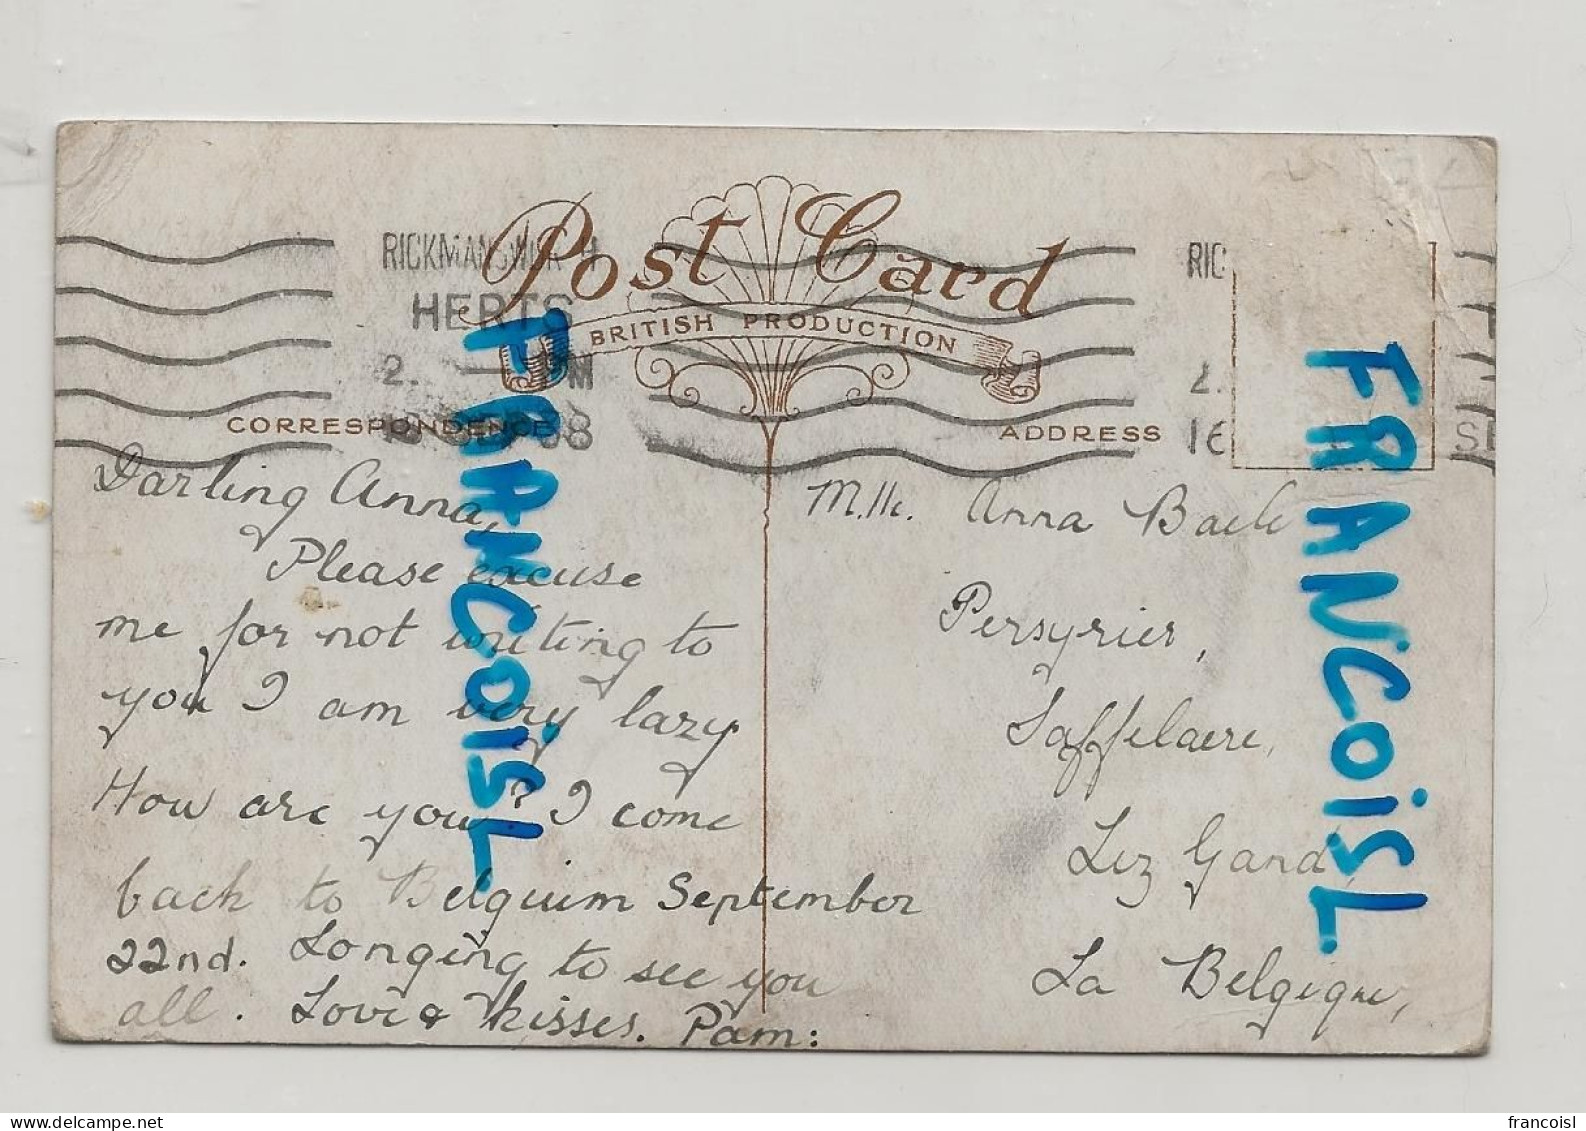 Post Card
BRITISH PRODUCTION
RICKMANSWORTH
HERTS
2. PM
RIC
2.
16
SE
CORRESPONDENCE
ADDRESS
Darling Anna,
Please excuse
me for not writing to
you I am very lazy
How are you? I come
back to Belgium September
22nd. Longing to see you
all. Love & kisses. Pam:
M.lle. Anna
Persyrier,
Saffelaere,
Lez Gand,
La Belgique,
FRANCOISL
FRANCOISL
delcampe.net
francoisl